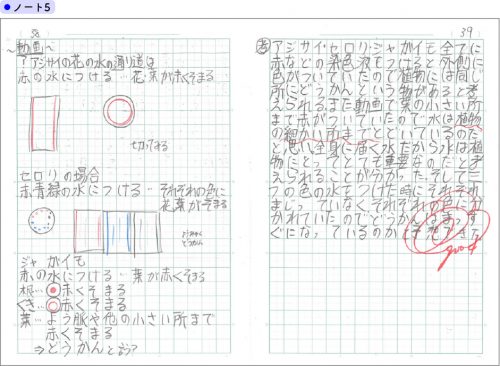 ノート5
38
~動画~
アジサイの花の水の通り道は
赤の水につける…花、葉が赤くそまる
切ってみる
セロリの場合
赤青緑の水につける…それぞれの色に
花葉がそまる
どうかん
ジャガイモ
赤の水につける…葉が赤くそまる
根…赤くそまる
くき…赤くそまる
葉…よう脈や他の小さい所まで
赤くそまる
⇒どうかんと言う?
39
考 アジサイ・セロリ・ジャガイモ全てに
赤などの染色液をつけると外側に
色がついていたので植物には同じ
所にどうかんという物があると考
えられるまた動画で葉の小さい所
まで赤がついていたので水は植物
の細かい所までとどいているのだ
と思い全身に届く水だから水は植
物にとってとても重要なのだと考
えられることが分かった。そして三
つの色の水をつけた時にそれぞれ
まじっていなくそれぞれの色に分
かれていたのでどうかんはまっす
ぐになっているのかと予想できた
good